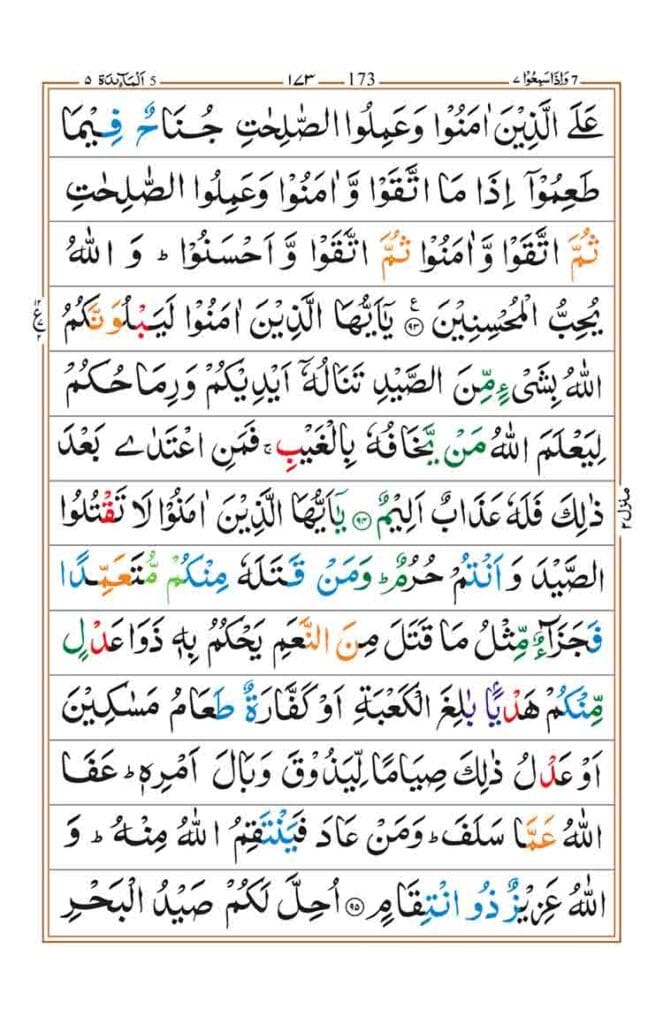 وَاِذَا سَمِعُوْا ٧ 7 173 ١٧٣ اَلْمَآئِدَة ٥ 5
عَلَى الَّذِيْنَ اٰمَنُوْا وَعَمِلُوا الصّٰلِحٰتِ جُنَاحٌ فِيْمَا
طَعِمُوْۤا اِذَا مَا اتَّقَوْا وَّاٰمَنُوْا وَعَمِلُوا الصّٰلِحٰتِ
ثُمَّ اتَّقَوْا وَّاٰمَنُوْا ثُمَّ اتَّقَوْا وَّاَحْسَنُوْا ؕ وَ اللّٰهُ
يُحِبُّ الْمُحْسِنِيْنَ ۟ع ٩٣ يٰۤاَيُّهَا الَّذِيْنَ اٰمَنُوْا لَيَبْلُوَنَّكُمُ
اللّٰهُ بِشَیْءٍ مِّنَ الصَّيْدِ تَنَالُهٗۤ اَيْدِيْكُمْ وَرِمَاحُكُمْ
لِيَعْلَمَ اللّٰهُ مَنْ يَّخَافُهٗ بِالْغَيْبِ ۚ فَمَنِ اعْتَدٰى بَعْدَ
ذٰلِكَ فَلَهٗ عَذَابٌ اَلِيْمٌ ٩٤ يٰۤاَيُّهَا الَّذِيْنَ اٰمَنُوْا لَا تَقْتُلُوا
الصَّيْدَ وَاَنْتُمْ حُرُمٌ ؕ وَمَنْ قَتَلَهٗ مِنْكُمْ مُّتَعَمِّدًا
فَجَزَآءٌ مِّثْلُ مَا قَتَلَ مِنَ النَّعَمِ يَحْكُمُ بِهٖ ذَوَا عَدْلٍ
مِّنْكُمْ هَدْيًاۢ بٰلِغَ الْكَعْبَةِ اَوْ كَفَّارَةٌ طَعَامُ مَسٰكِيْنَ
اَوْ عَدْلُ ذٰلِكَ صِيَامًا لِّيَذُوْقَ وَبَالَ اَمْرِهٖ ؕ عَفَا
اللّٰهُ عَمَّا سَلَفَ ؕ وَمَنْ عَادَ فَيَنْتَقِمُ اللّٰهُ مِنْهُ ؕ وَ
اللّٰهُ عَزِيْزٌ ذُو انْتِقَامٍ ٩٥ اُحِلَّ لَكُمْ صَيْدُ الْبَحْرِ
منزل ٢